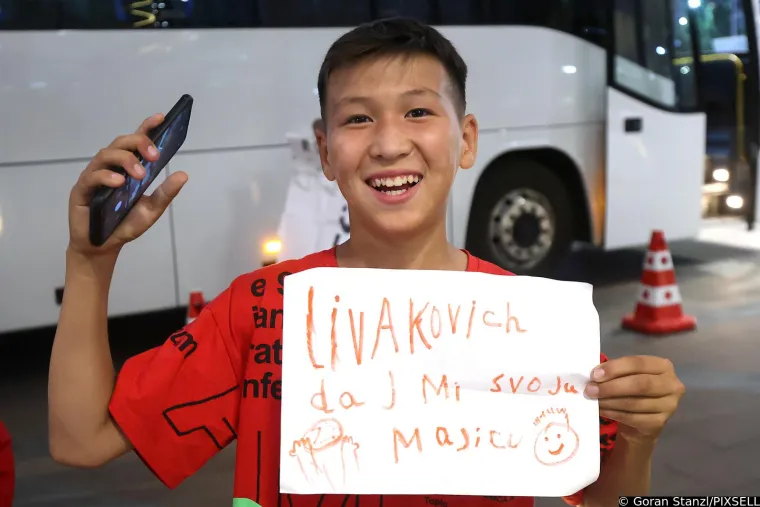 LIVAKOVich
daJ Mi SVOJU
MAJicu
e S
an
m
rat
nfe
© Goran Stanzl/PIXSELL